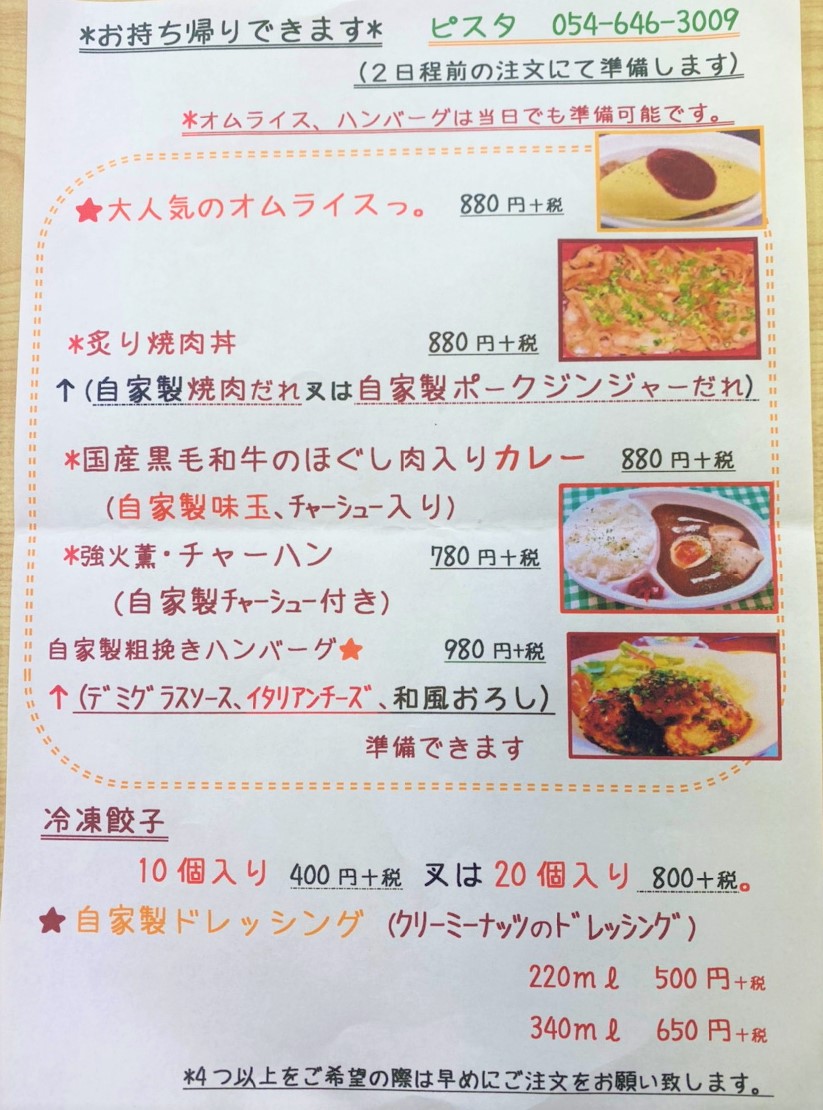 *お持ち帰りできます* ピスタ 054-646-3009
(2日程前の注文にて準備します)
*オムライス、ハンバーグは当日でも準備可能です。
★大人気のオムライスっ。 880円+税
*炙り焼肉丼 880円+税
↑(自家製焼肉だれ又は自家製ポークジンジャーだれ)
*国産黒毛和牛のほぐし肉入りカレー 880円+税
(自家製味玉、チャーシュー入り)
*強火薫・チャーハン 780円+税
(自家製チャーシュー付き)
自家製粗挽きハンバーグ★ 980円+税
↑(デミグラスソース、イタリアンチーズ、和風おろし)
準備できます
冷凍餃子
10個入り 400円+税 又は20個入り 800+税。
★自家製ドレッシング (クリーミーナッツのドレッシング)
220mℓ 500円+税
340mℓ 650円+税
*4つ以上をご希望の際は早めにご注文をお願い致します。